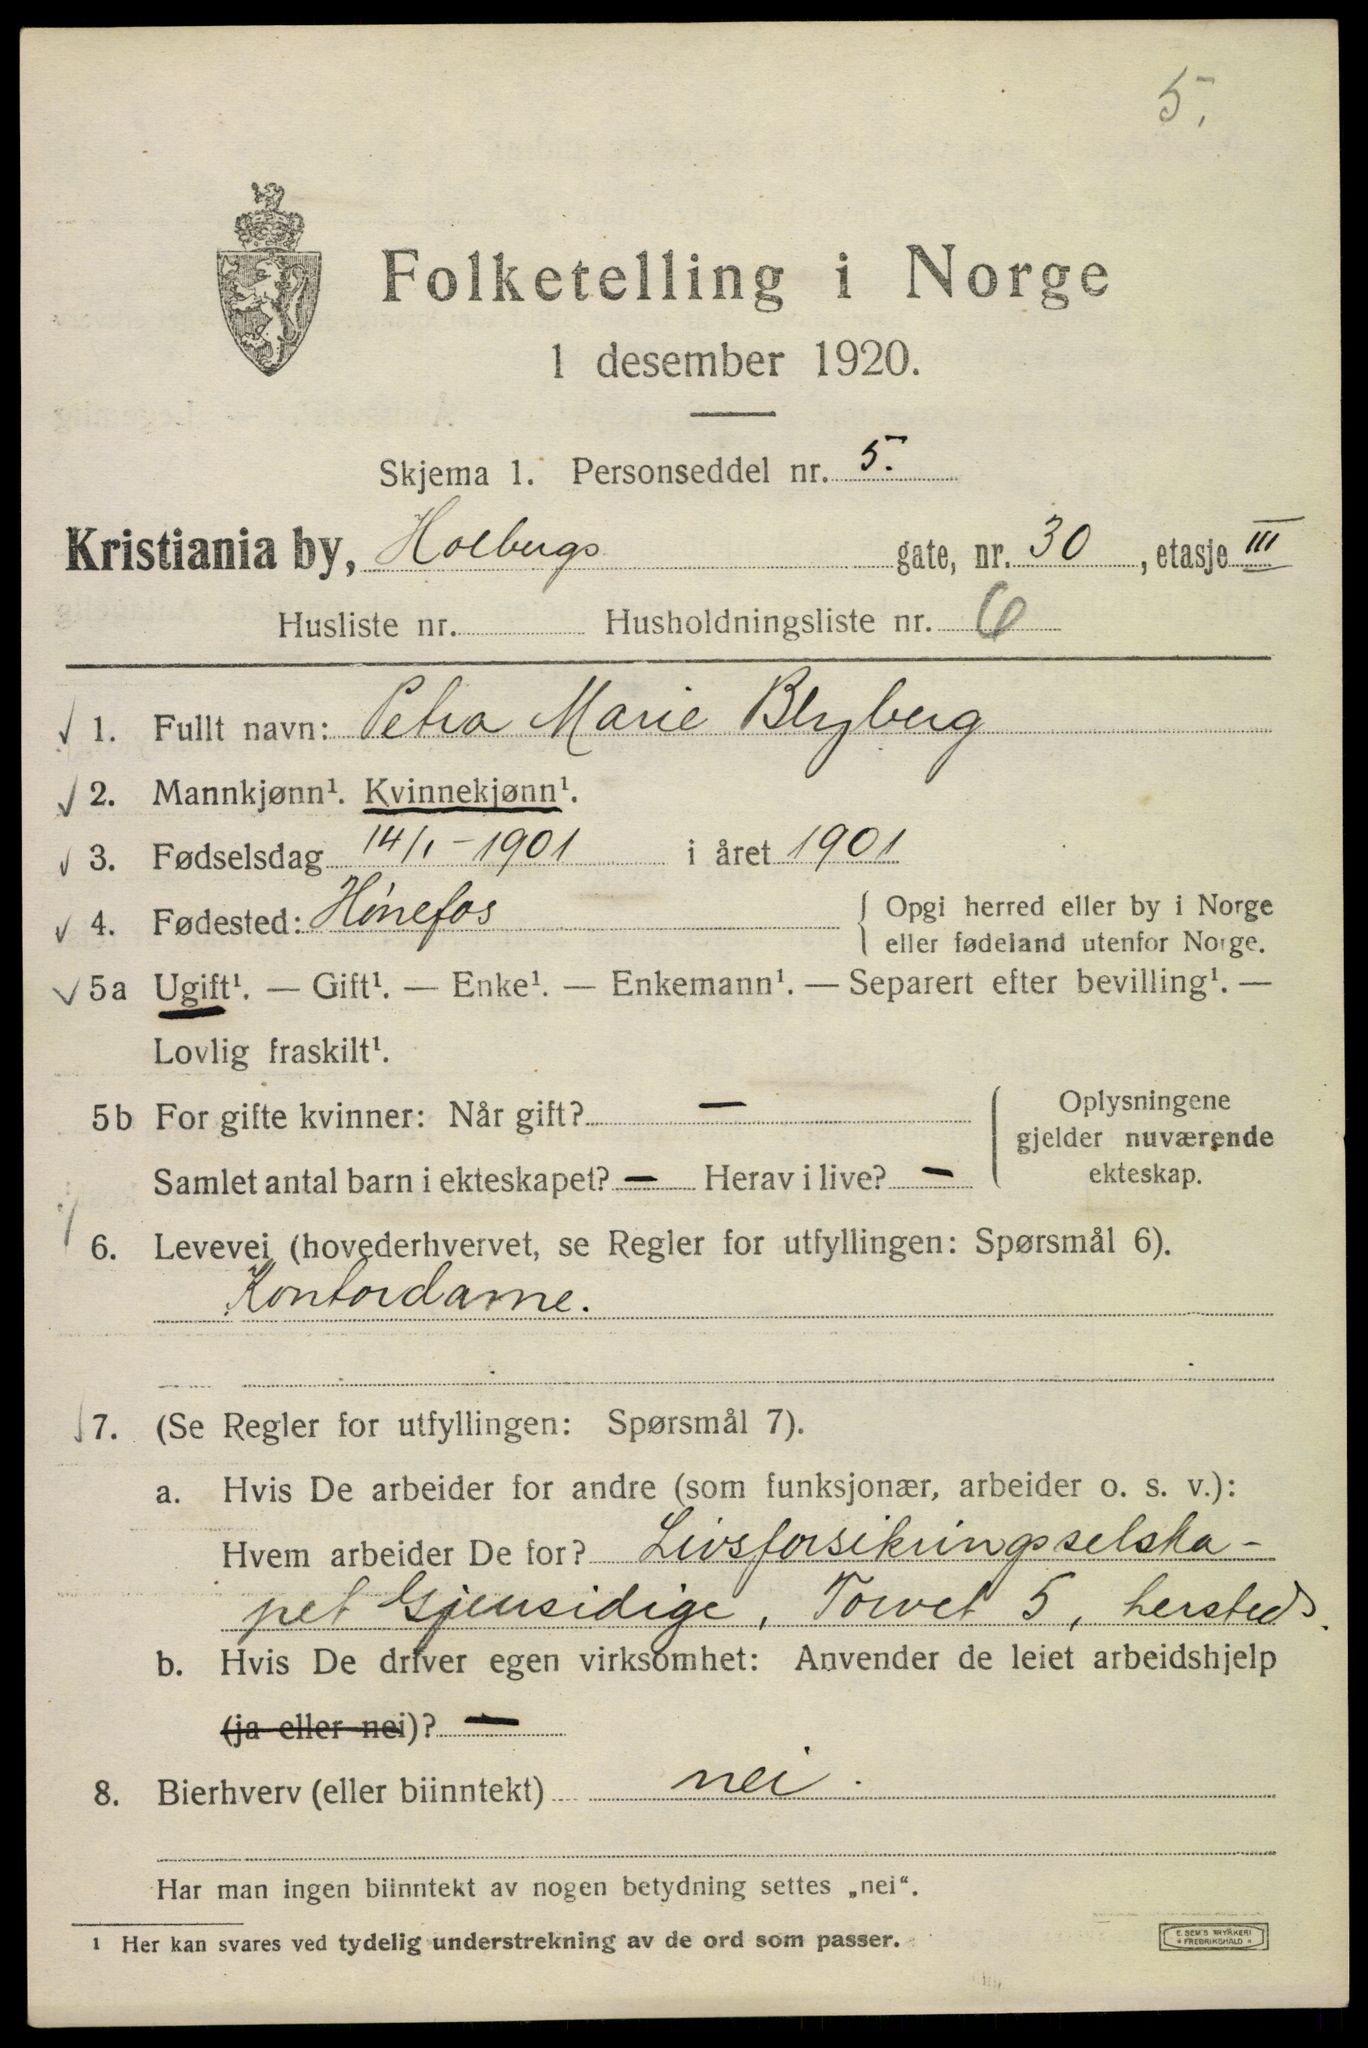 5.
Folketelling i Norge
1 desember 1920.
Skjema 1. Personseddel nr. 5.
Kristiania by, Holbergs gate, nr. 30, etasje III
Husliste nr. Husholdningsliste nr. 6
1. Fullt navn: Petra Marie Blyberg
2. Mannkjønn¹. Kvinnekjønn¹.
3. Fødselsdag 14/1-1901 i året 1901
4. Fødested: Hønefos { Opgi herred eller by i Norge
eller fødeland utenfor Norge.
5a Ugift¹. — Gift¹. — Enke¹. — Enkemann¹. — Separert efter bevilling¹. —
Lovlig fraskilt¹.
5b For gifte kvinner: Når gift? —
Samlet antal barn i ekteskapet? — Herav i live? —
Oplysningene
gjelder nuværende
ekteskap.
6. Levevei (hovederhvervet, se Regler for utfyllingen: Spørsmål 6).
Kontordame.
7. (Se Regler for utfyllingen: Spørsmål 7).
a. Hvis De arbeider for andre (som funksjonær, arbeider o. s. v.):
Hvem arbeider De for? Livsforsikringsselska-
pet Gjensidige, Torvet 5, hersteds.
b. Hvis De driver egen virksomhet: Anvender de leiet arbeidshjelp
(ja eller nei)? —
8. Bierhverv (eller biinntekt) nei.
Har man ingen biinntekt av nogen betydning settes „nei“.
¹ Her kan svares ved tydelig understrekning av de ord som passer.
E. SEM'S TRYKKERI
FREDRIKSHALD